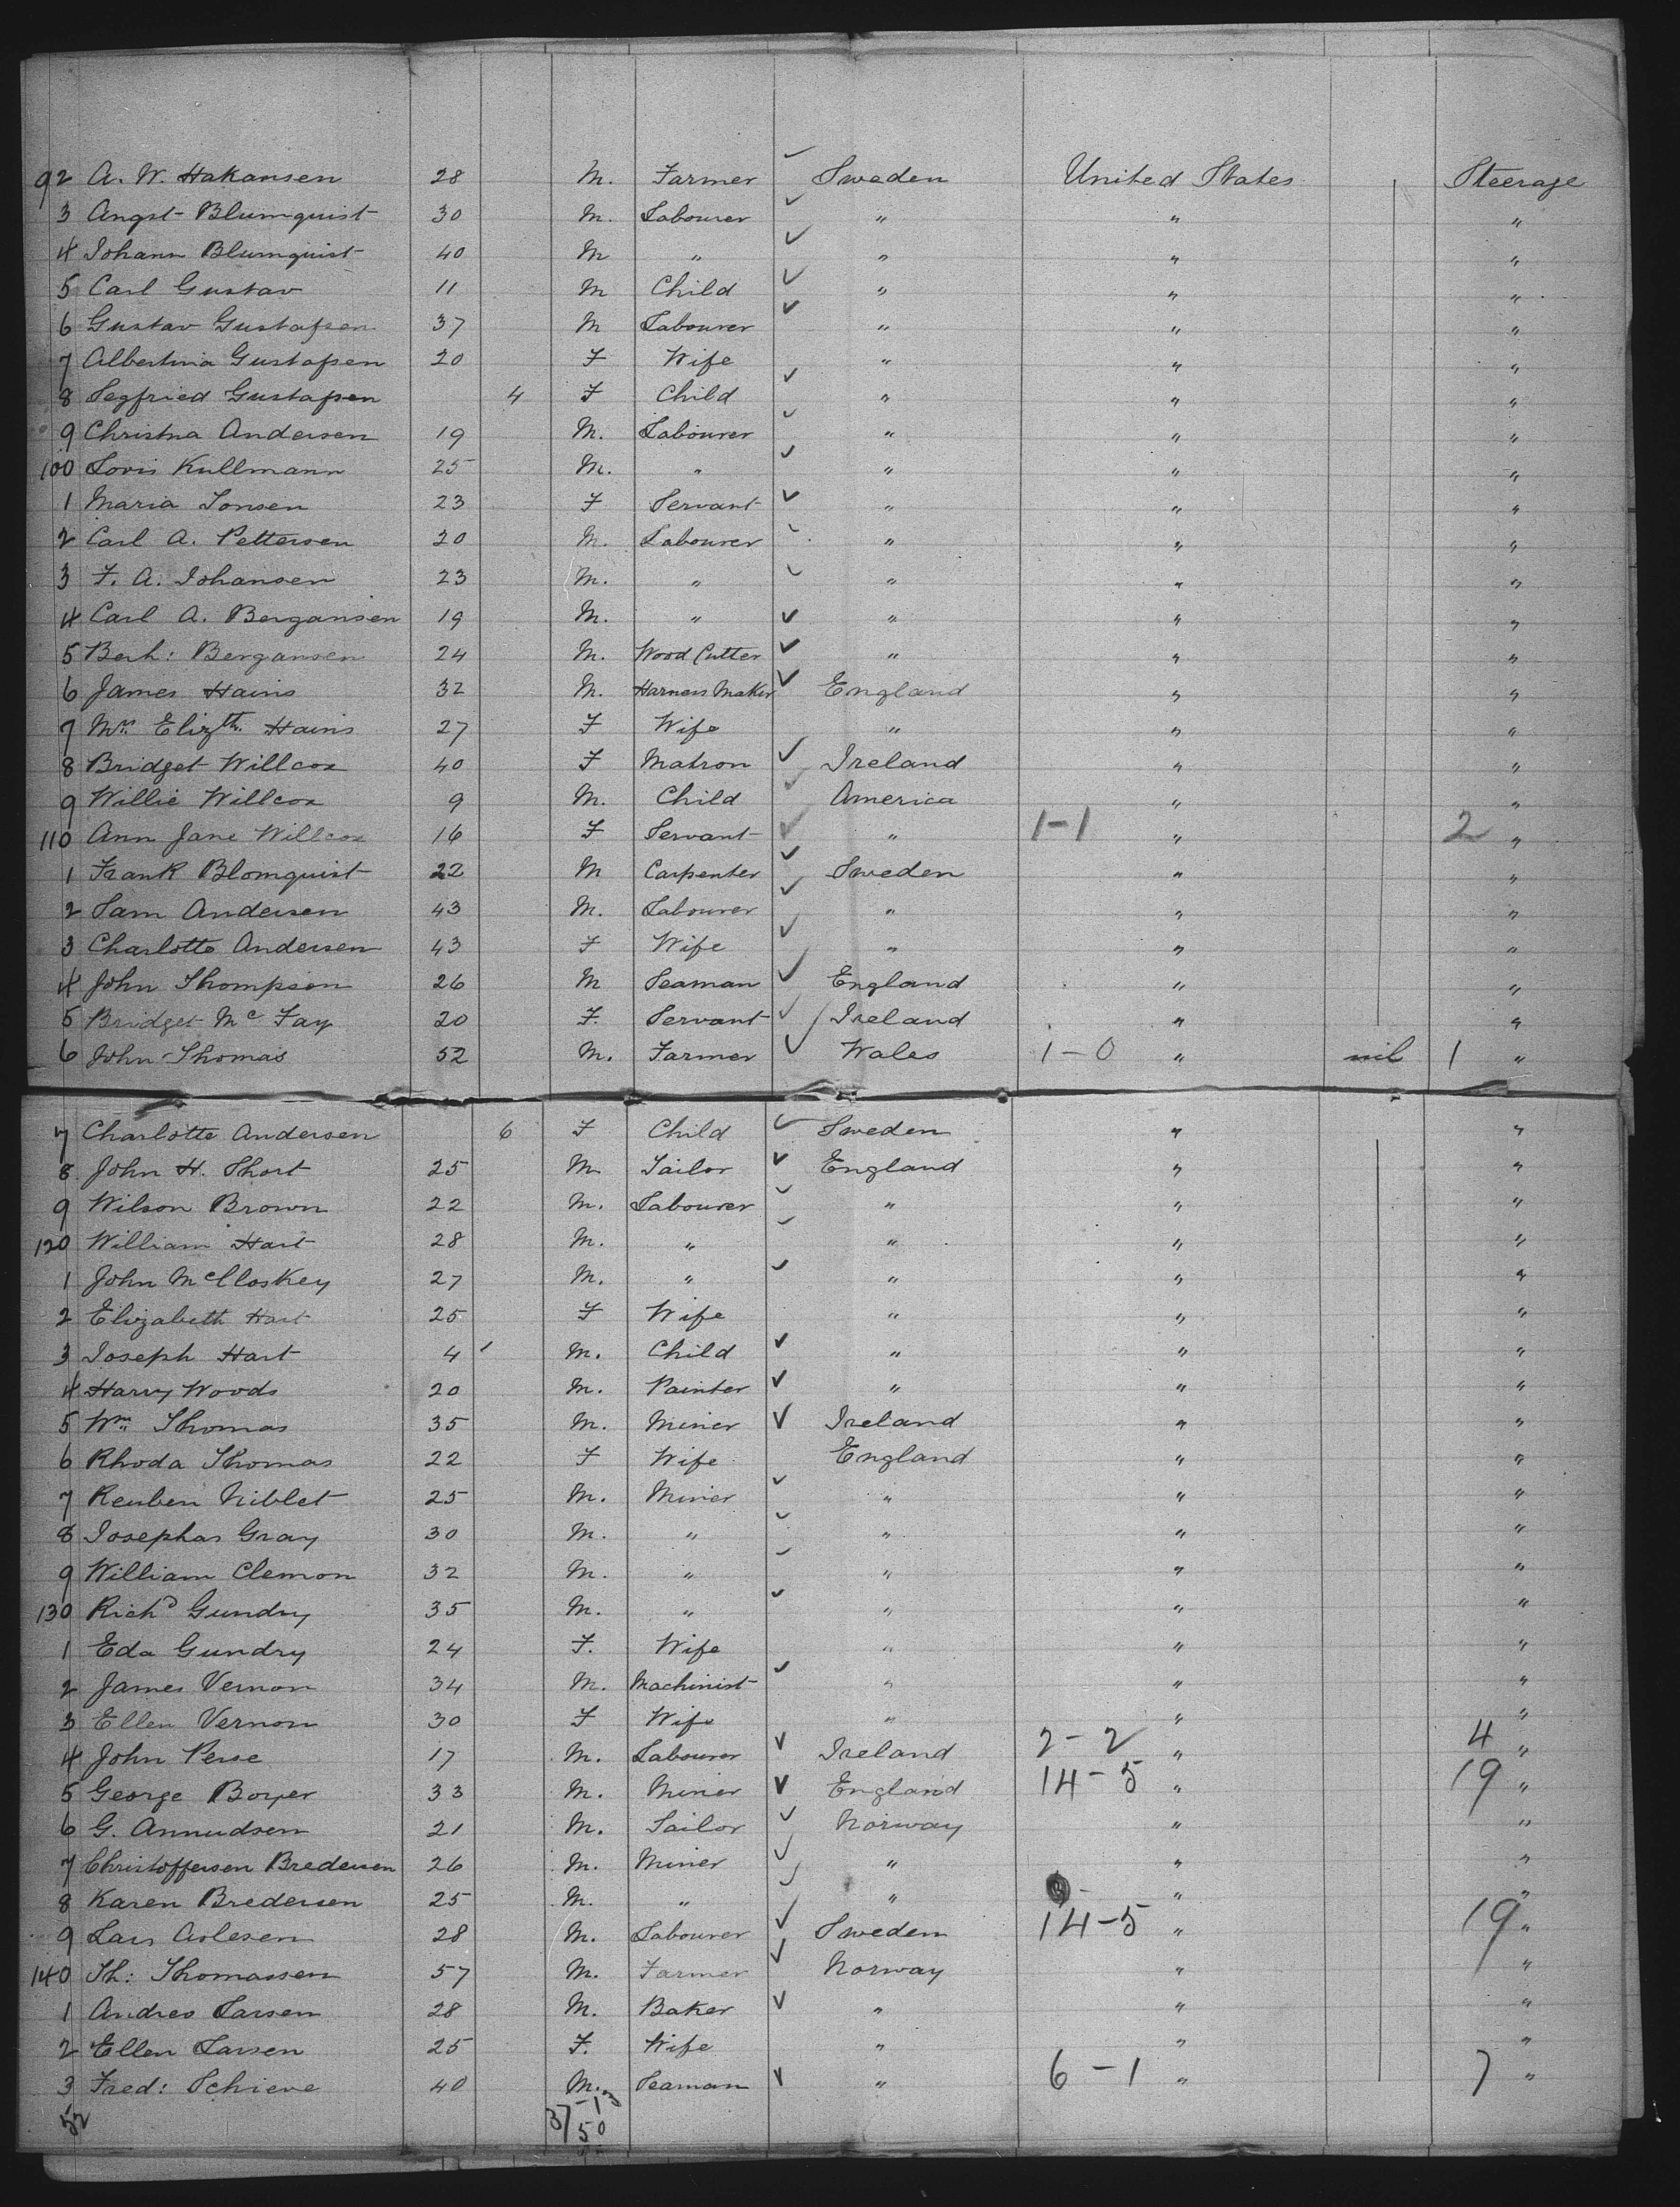 92 A. W. Hakansen 28 M. Farmer ✓ Sweden United States Steerage
3 Angst Blumquist 30 M. Labourer ✓ " " "
4 Johann Blumquist 40 M " ✓ " " "
5 Carl Gustav 11 M Child ✓ " " "
6 Gustav Gustafsen 37 M Labourer ✓ " " "
7 Albertina Gustafsen 20 F Wife " " "
8 Segfried Gustafsen 4 F Child ✓ " " "
9 Christna Andersen 19 M. Labourer ✓ " " "
100 Lovis Kullmann 25 M. " ✓ " " "
1 Maria Jonsen 23 F Servant ✓ " " "
2 Carl A. Pettersen 20 M. Labourer ✓ " " "
3 F. A. Johansen 23 M. " ✓ " " "
4 Carl A. Bergansen 19 M. " ✓ " " "
5 Berh: Bergansen 24 M. Wood Cutter ✓ " " "
6 James Hains 32 M. Harness Maker ✓ England " "
7 Mrs Elizth. Hains 27 F Wife " " "
8 Bridget Willcox 40 F Matron ✓ Ireland " "
9 Willie Willcox 9 M. Child ✓ America " "
110 Ann Jane Willcox 16 F Servant ✓ " 1-1 " 2 "
1 Frank Blomquist 22 M Carpenter ✓ Sweden " "
2 Sam Andersen 43 M. Labourer ✓ " " "
3 Charlotte Andersen 43 F Wife ✓ " " "
4 John Thompson 26 M Seaman ✓ England " "
5 Bridget Mc Fay 20 F. Servant ✓ Ireland " "
6 John Thomas 52 M. Farmer ✓ Wales 1-0 " nil 1 "
7 Charlotte Andersen 6 F Child ✓ Sweden " "
8 John H. Short 25 M. Tailor ✓ England " "
9 Wilson Brown 22 M. Labourer ✓ " " "
120 William Hart 28 M. " ✓ " " "
1 John McCloskey 27 M. " ✓ " " "
2 Elizabeth Hart 25 F Wife " " "
3 Joseph Hart 4 M. Child ✓ " " "
4 Harry Woods 20 M. Painter ✓ " " "
5 Wm Thomas 35 M. Miner ✓ Ireland " "
6 Rhoda Thomas 22 F Wife England " "
7 Reuben Niblet 25 M. Miner ✓ " " "
8 Josephas Gray 30 M. " ✓ " " "
9 William Clemon 32 M. " ✓ " " "
130 Richd Gundry 35 M. " ✓ " " "
1 Eda Gundry 24 F. Wife " " "
2 James Vernon 34 M. Machinist ✓ " " "
3 Ellen Vernon 30 F Wife " " "
4 John Perse 17 M. Labourer ✓ Ireland 2-2 " 4 "
5 George Boyer 33 M. Miner ✓ England 14-5 " 19 "
6 G. Annudsen 21 M. Sailor ✓ Norway " "
7 Christoffersen Bredersen 26 M. Miner ✓ " " "
8 Karen Bredersen 25 M. " ✓ " " "
9 Lars Aslesen 28 M. Labourer ✓ Sweden 14-5 " 19 "
140 Th: Thomassen 57 M. Farmer ✓ Norway " "
1 Andreo Larsen 28 M. Baker ✓ " " "
2 Ellen Larsen 25 F. Wife " " "
3 Fred: Schieve 40 M. Seaman ✓ " 6-1 " 7 "
52 37-13
50